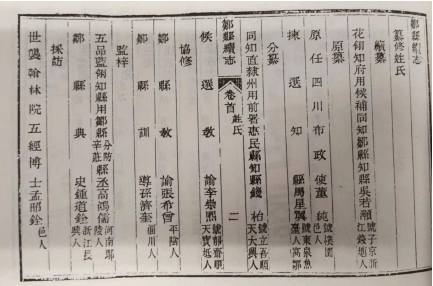 鄒縣續志
纂修姓氏
續纂
花翎知府用候補同知鄒縣知縣吳若灝號子京浙江錢塘人
原纂
原任四川布政使董純號
揀選知縣馬星翼號東泉魚臺人
分纂
同知直隸州用前署恵民縣知縣錢枱號立吾順天大興人
鄒縣續志 卷首 姓氏 二
候選教諭李崇熙號靜齋順天寶坻人
協修
鄒縣教諭張布曾平陰人
鄒縣訓導孫濟奎淄川人
監梓
五品藍翎知縣用鄒縣分防辛莊縣丞高鴻儒河南鄢陵人
鄒縣典史鍾道銓浙江長興人
採訪
世襲翰林院五經博士孟昭銓邑人